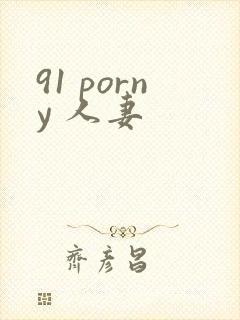 91 porn
y 人妻
齊彥昌